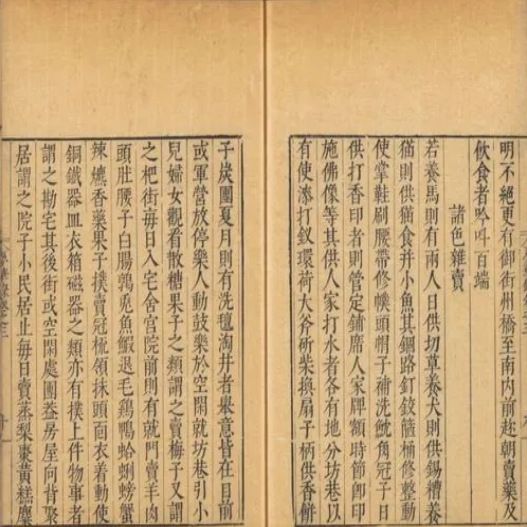 明不絕更有御街州橋至南內前趂朝賣藥及
飲食者吟叫百端
諸色雜賣
若養馬則有兩人日供切草養犬則供餳糟養
猫則供猫食并小魚其錮路釘鉸箍桶修整動
使掌鞋刷腰帶修幞頭帽子補洗魫角冠子日
供打香印者則管定鋪席人家牌額時節即印
施佛像等其供人家打水者各有地分坊巷以
有使漆打釵環荷大斧斫柴換扇子柄供香餅
子炭團夏月則有洗氊淘井者舉意皆在目前
或軍營放停樂人動鼓樂於空閑就坊巷引小
兒婦女觀看散糖果子之類謂之賣梅子又謂
之杷街每日入宅舍宮院前則有就門賣羊肉
頭肚腰子白腸鶉兎魚鰕退毛鷄鴨蛤蜊螃蟹
辣爊香藥果子撲賣冠梳領抹頭面衣着動使
銅鐵器皿衣箱磁器之類亦有撲上件物事者
謂之勘宅其後街或空閑處團葢房屋向背聚
居謂之院子小民居止每日賣蒸梨棗黃糕麋